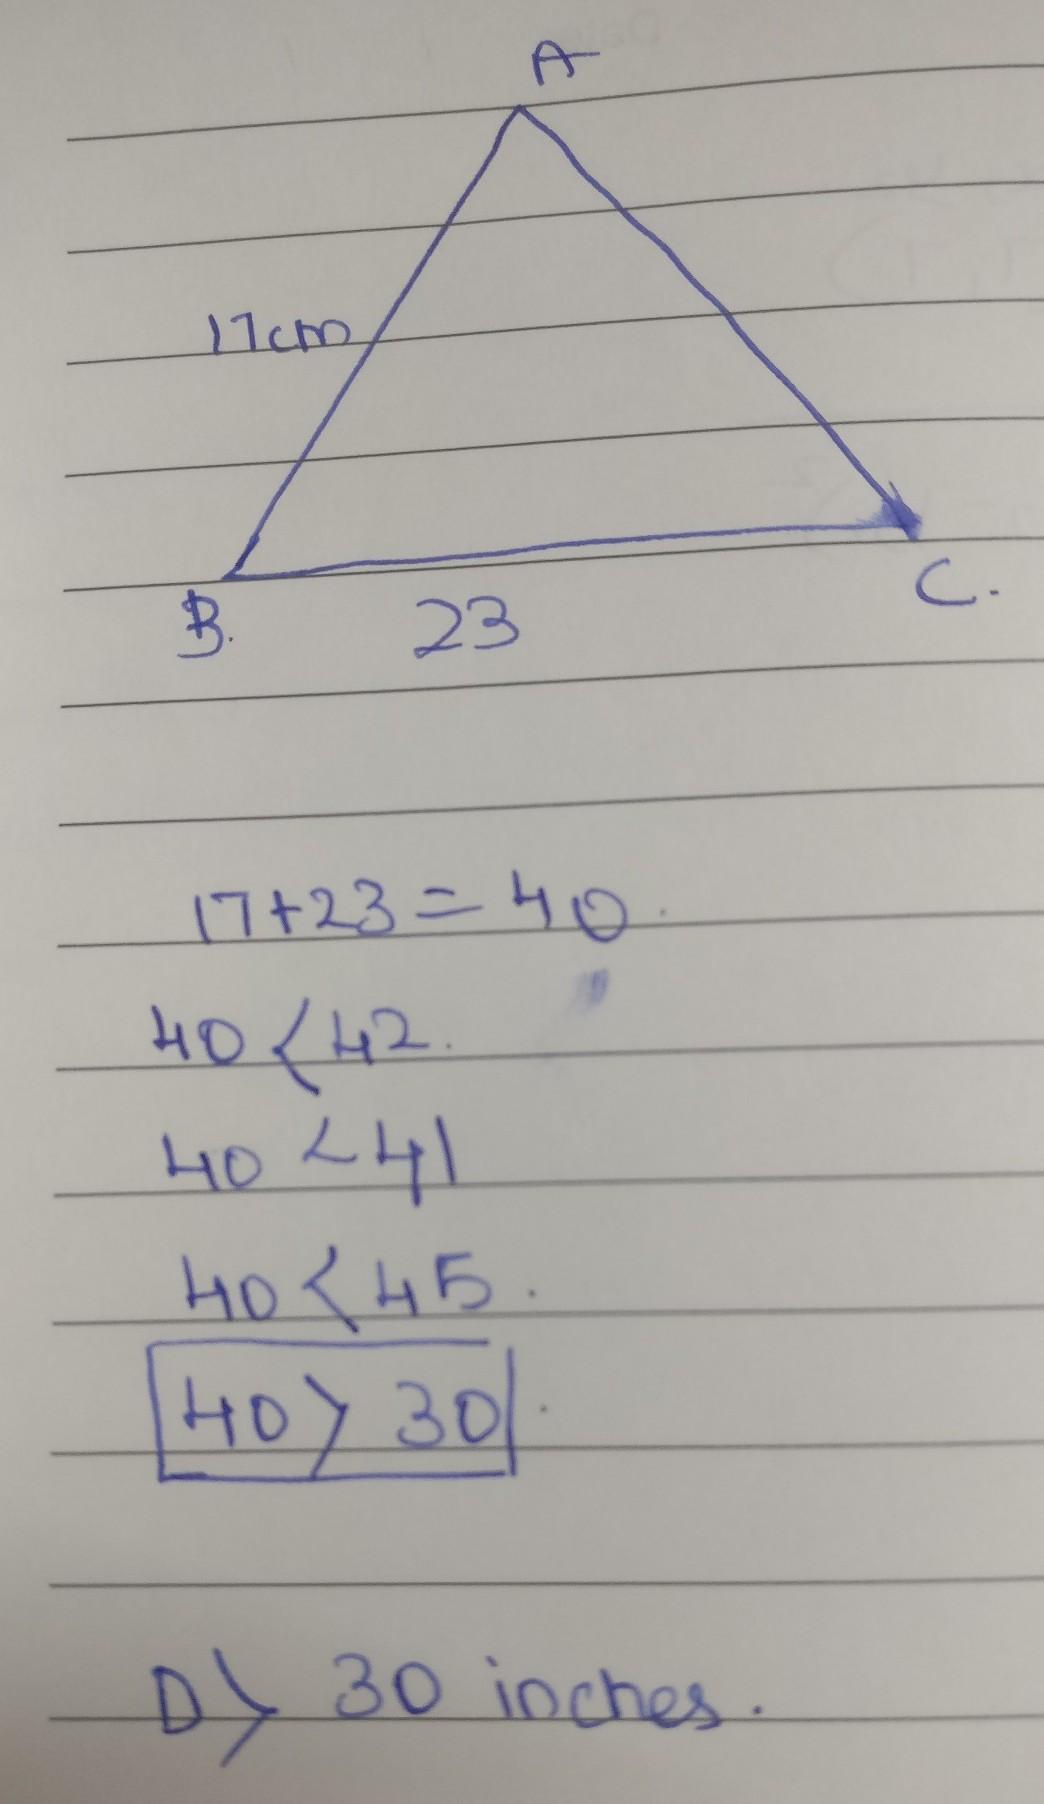 A
17cm
B.
23
C.
17+23=40.
40<42.
40<41
40<45.
40>30.
D) 30 inches.